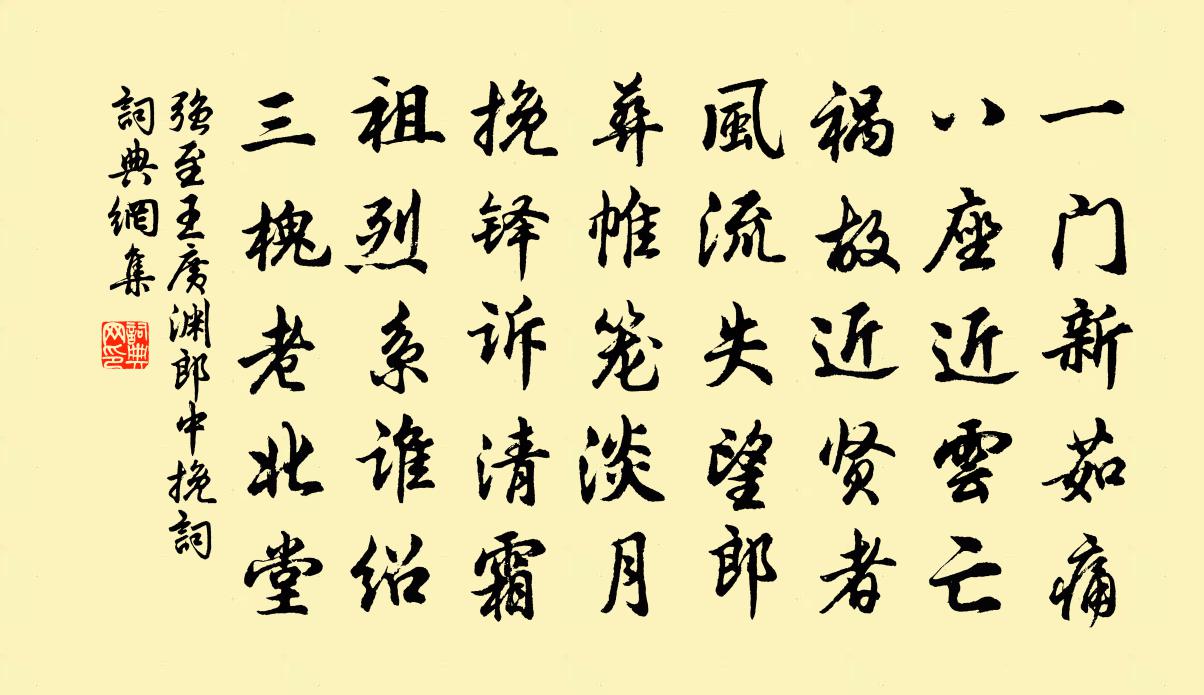 一门新茹痛
八座近雲亡
禍故近贤者
風流失望郎
葬帷笼淡月
挽铎诉清霜
祖烈系谁绍
三槐老北堂
強至王廣渊郎中挽詞
詞典網集
詞典网印